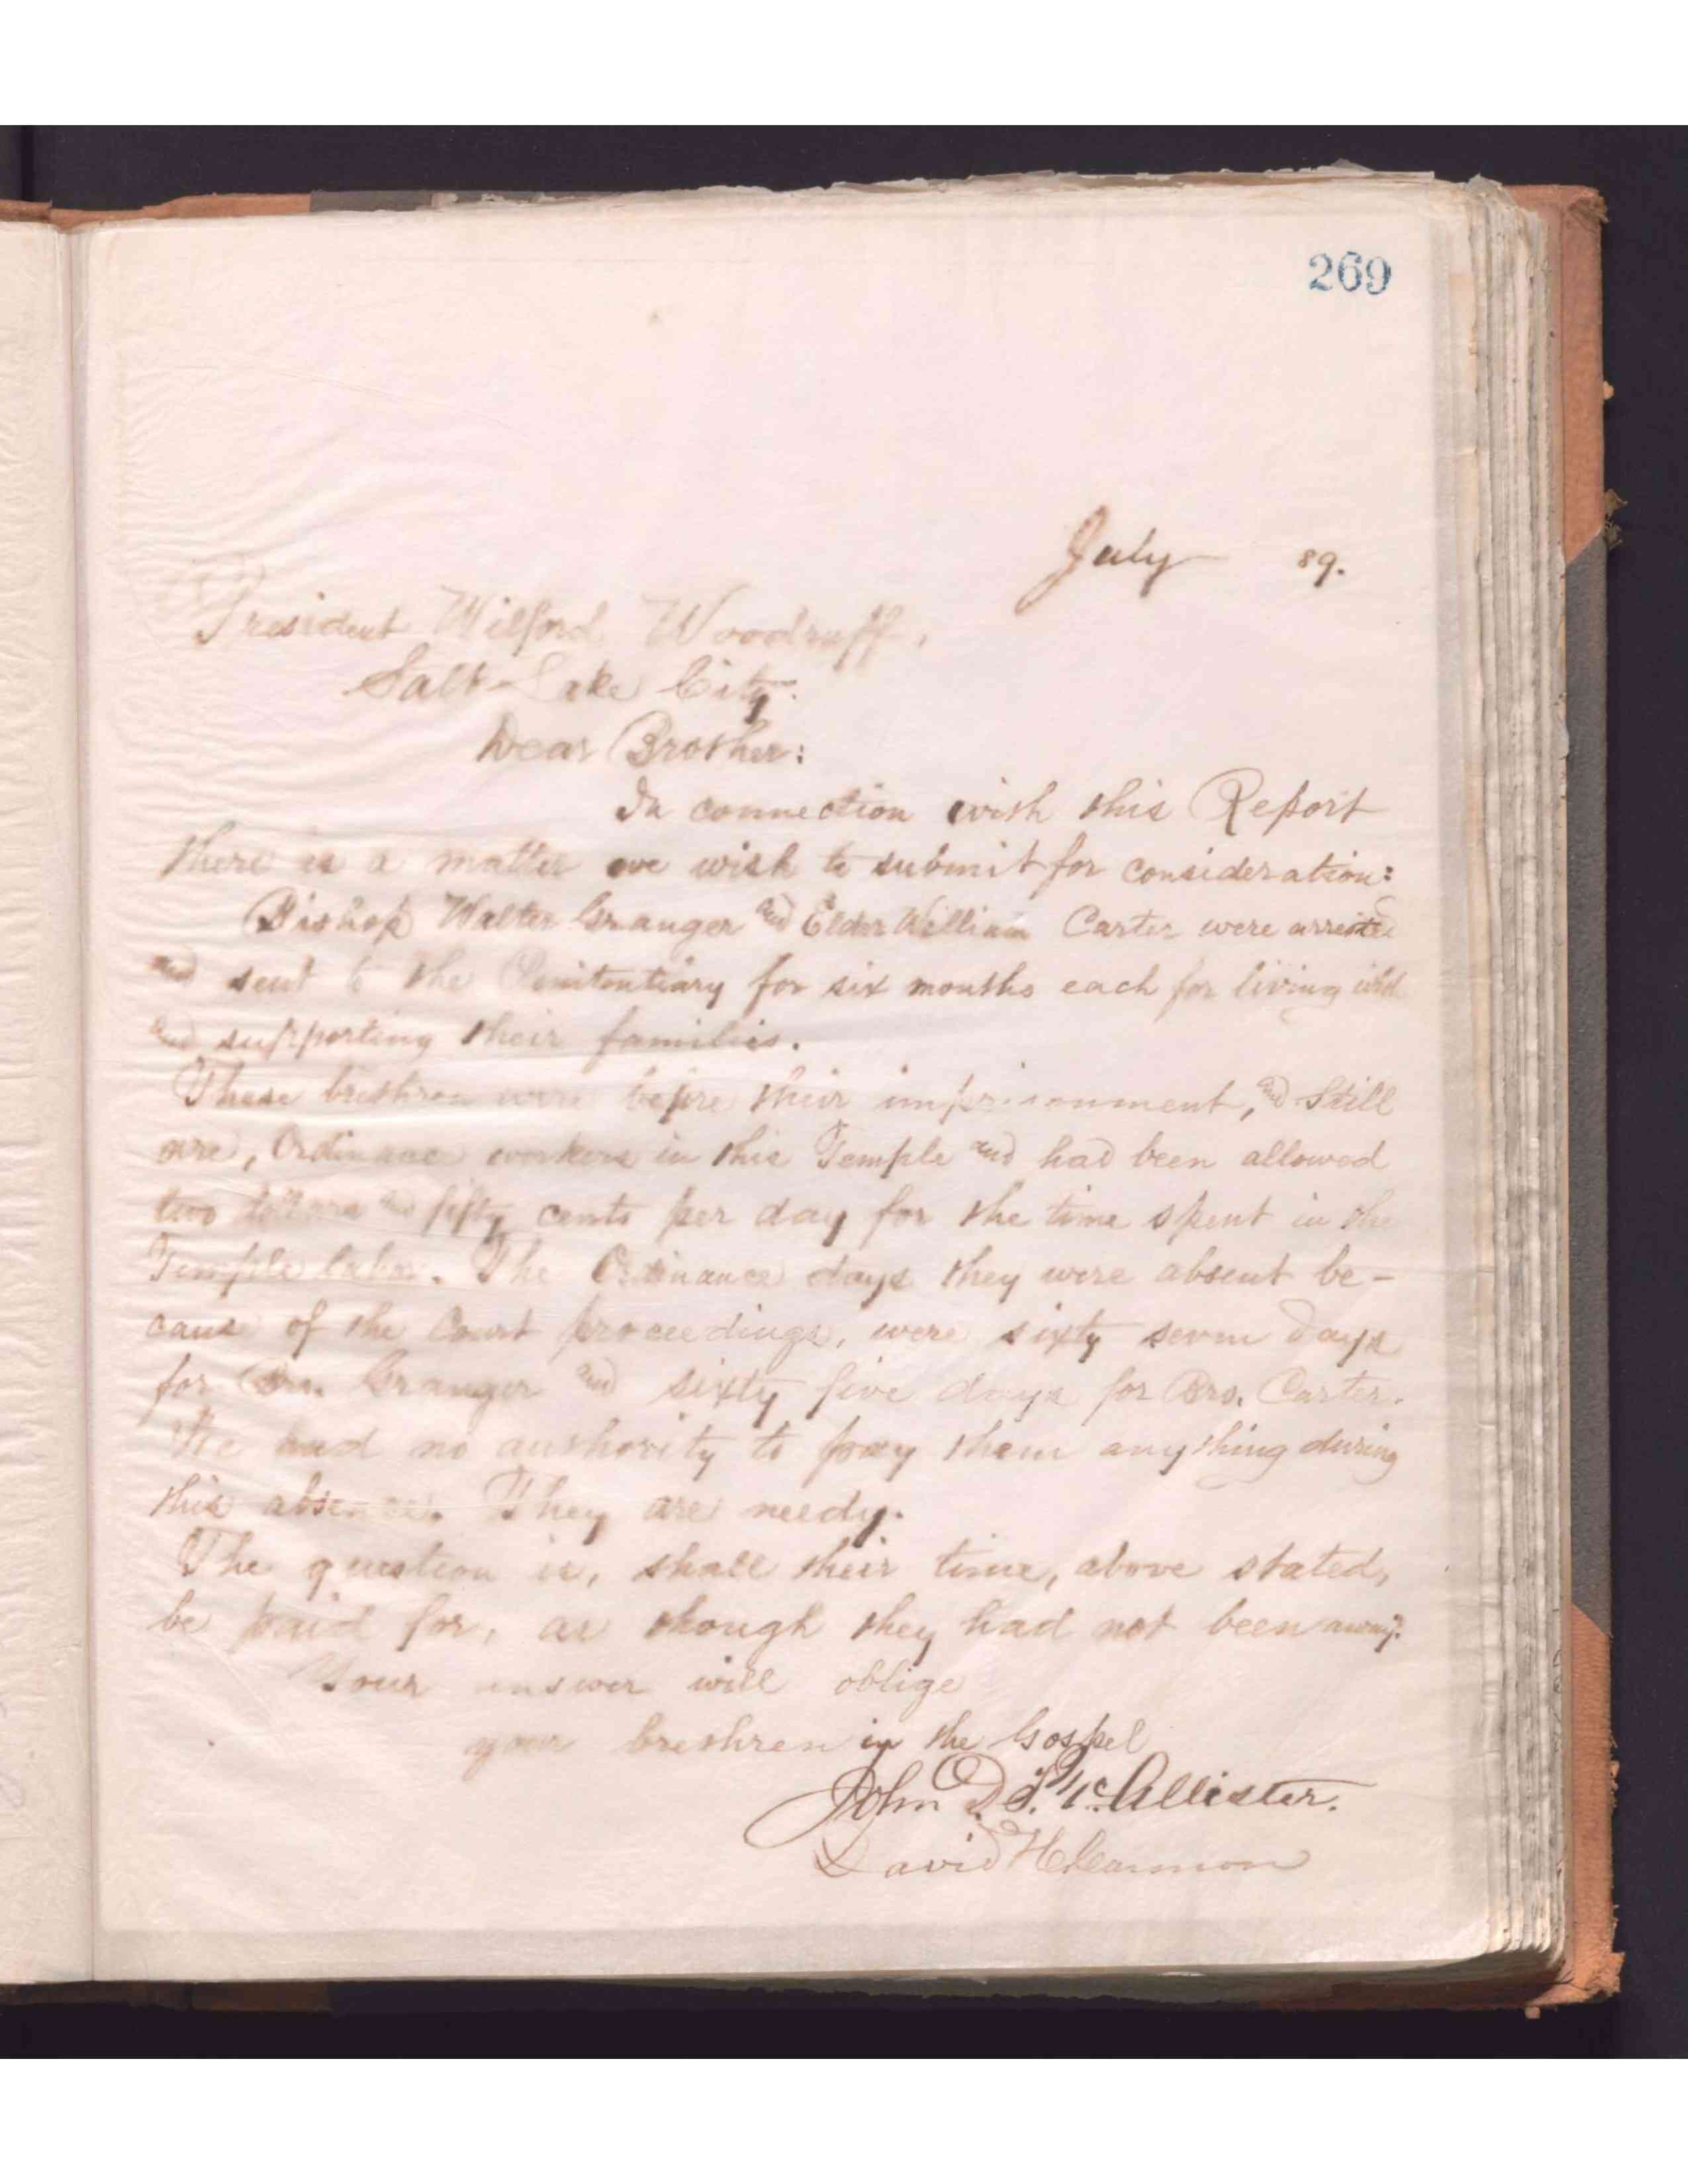 269
July 89.
President Wilford Woodruff,
Salt Lake City.
Dear Brother:
In connection with this Report
there is a matter we wish to submit for consideration:
Bishop Walter Granger and Elder William Carter were arrested
and sent to the Penitentiary for six months each for living with
and supporting their families.
These brethren were before their imprisonment, and still
are, Ordinance workers in this Temple and had been allowed
two dollars and fifty cents per day for the time spent in the
Temple labor. The Ordinance days they were absent be-
cause of the Court proceedings, were sixty seven days
for Bro. Granger and sixty five days for Bro. Carter.
We had no authority to pay them anything during
this absence. They are needy.
The question is, shall their time, above stated,
be paid for, as though they had not been away?
Your answer will oblige
your brethren in the Gospel
John D. T. McAllister.
David H Cannon